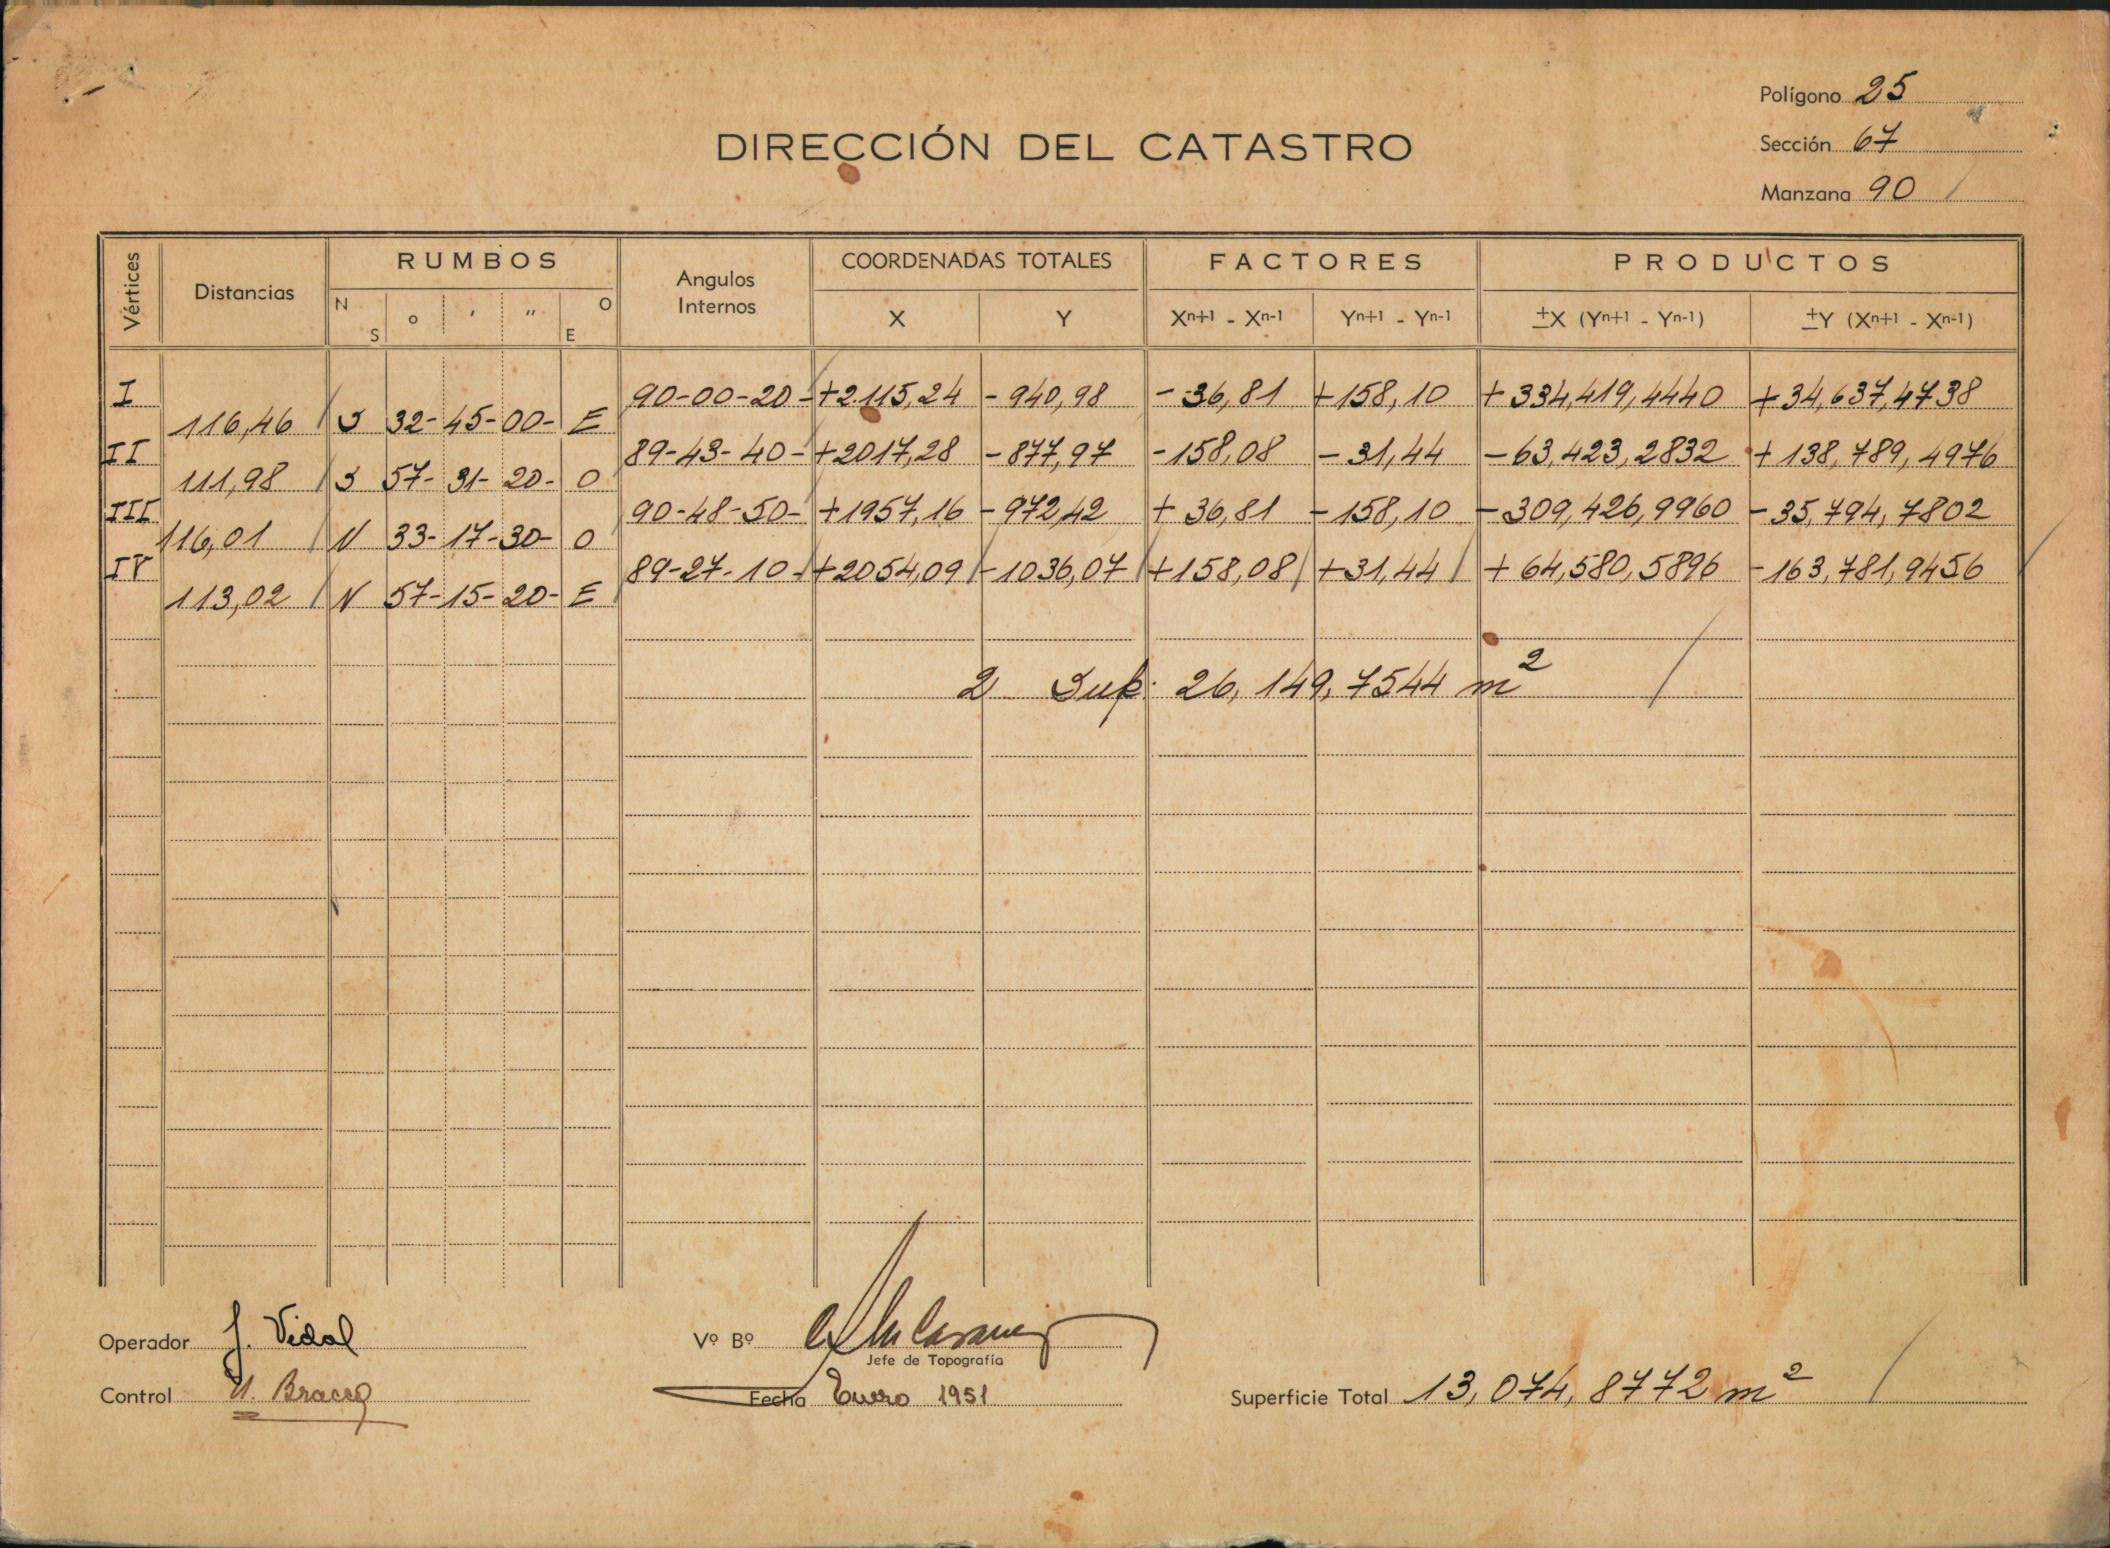 Polígono 25
DIRECCIÓN DEL CATASTRO
Sección 67
Manzana 90
Vértices Distancias RUMBOS Angulos Internos COORDENADAS TOTALES FACTORES PRODUCTOS
N S o ' " O E X Y Xn+1 - Xn-1 Yn+1 - Yn-1 ±X (Yn+1 - Yn-1) ±Y (Xn+1 - Xn-1)
I 90-00-20- +2115,24 -940,98 -36,81 +158,10 +334,419,4440 +34,637,4738
116,46 S 32-45-00- E
II 89-43-40- +2017,28 -877,97 -158,08 -31,44 -63,423,2832 +138,789,4976
111,98 S 57-31-20- O
III 90-48-50- +1957,16 -972,42 +36,81 -158,10 -309,426,9960 -35,794,7802
116,01 N 33-17-30- O
IV 89-27-10- +2054,09 -1036,07 +158,08 +31,44 +64,580,5896 -163,781,9456
113,02 N 57-15-20- E
2 Sup. 26,149,7544 m²
Operador J. Vidal Vº Bº
Jefe de Topografía
Control U. Bracco Fecha Enero 1951 Superficie Total 13,074,8772 m²